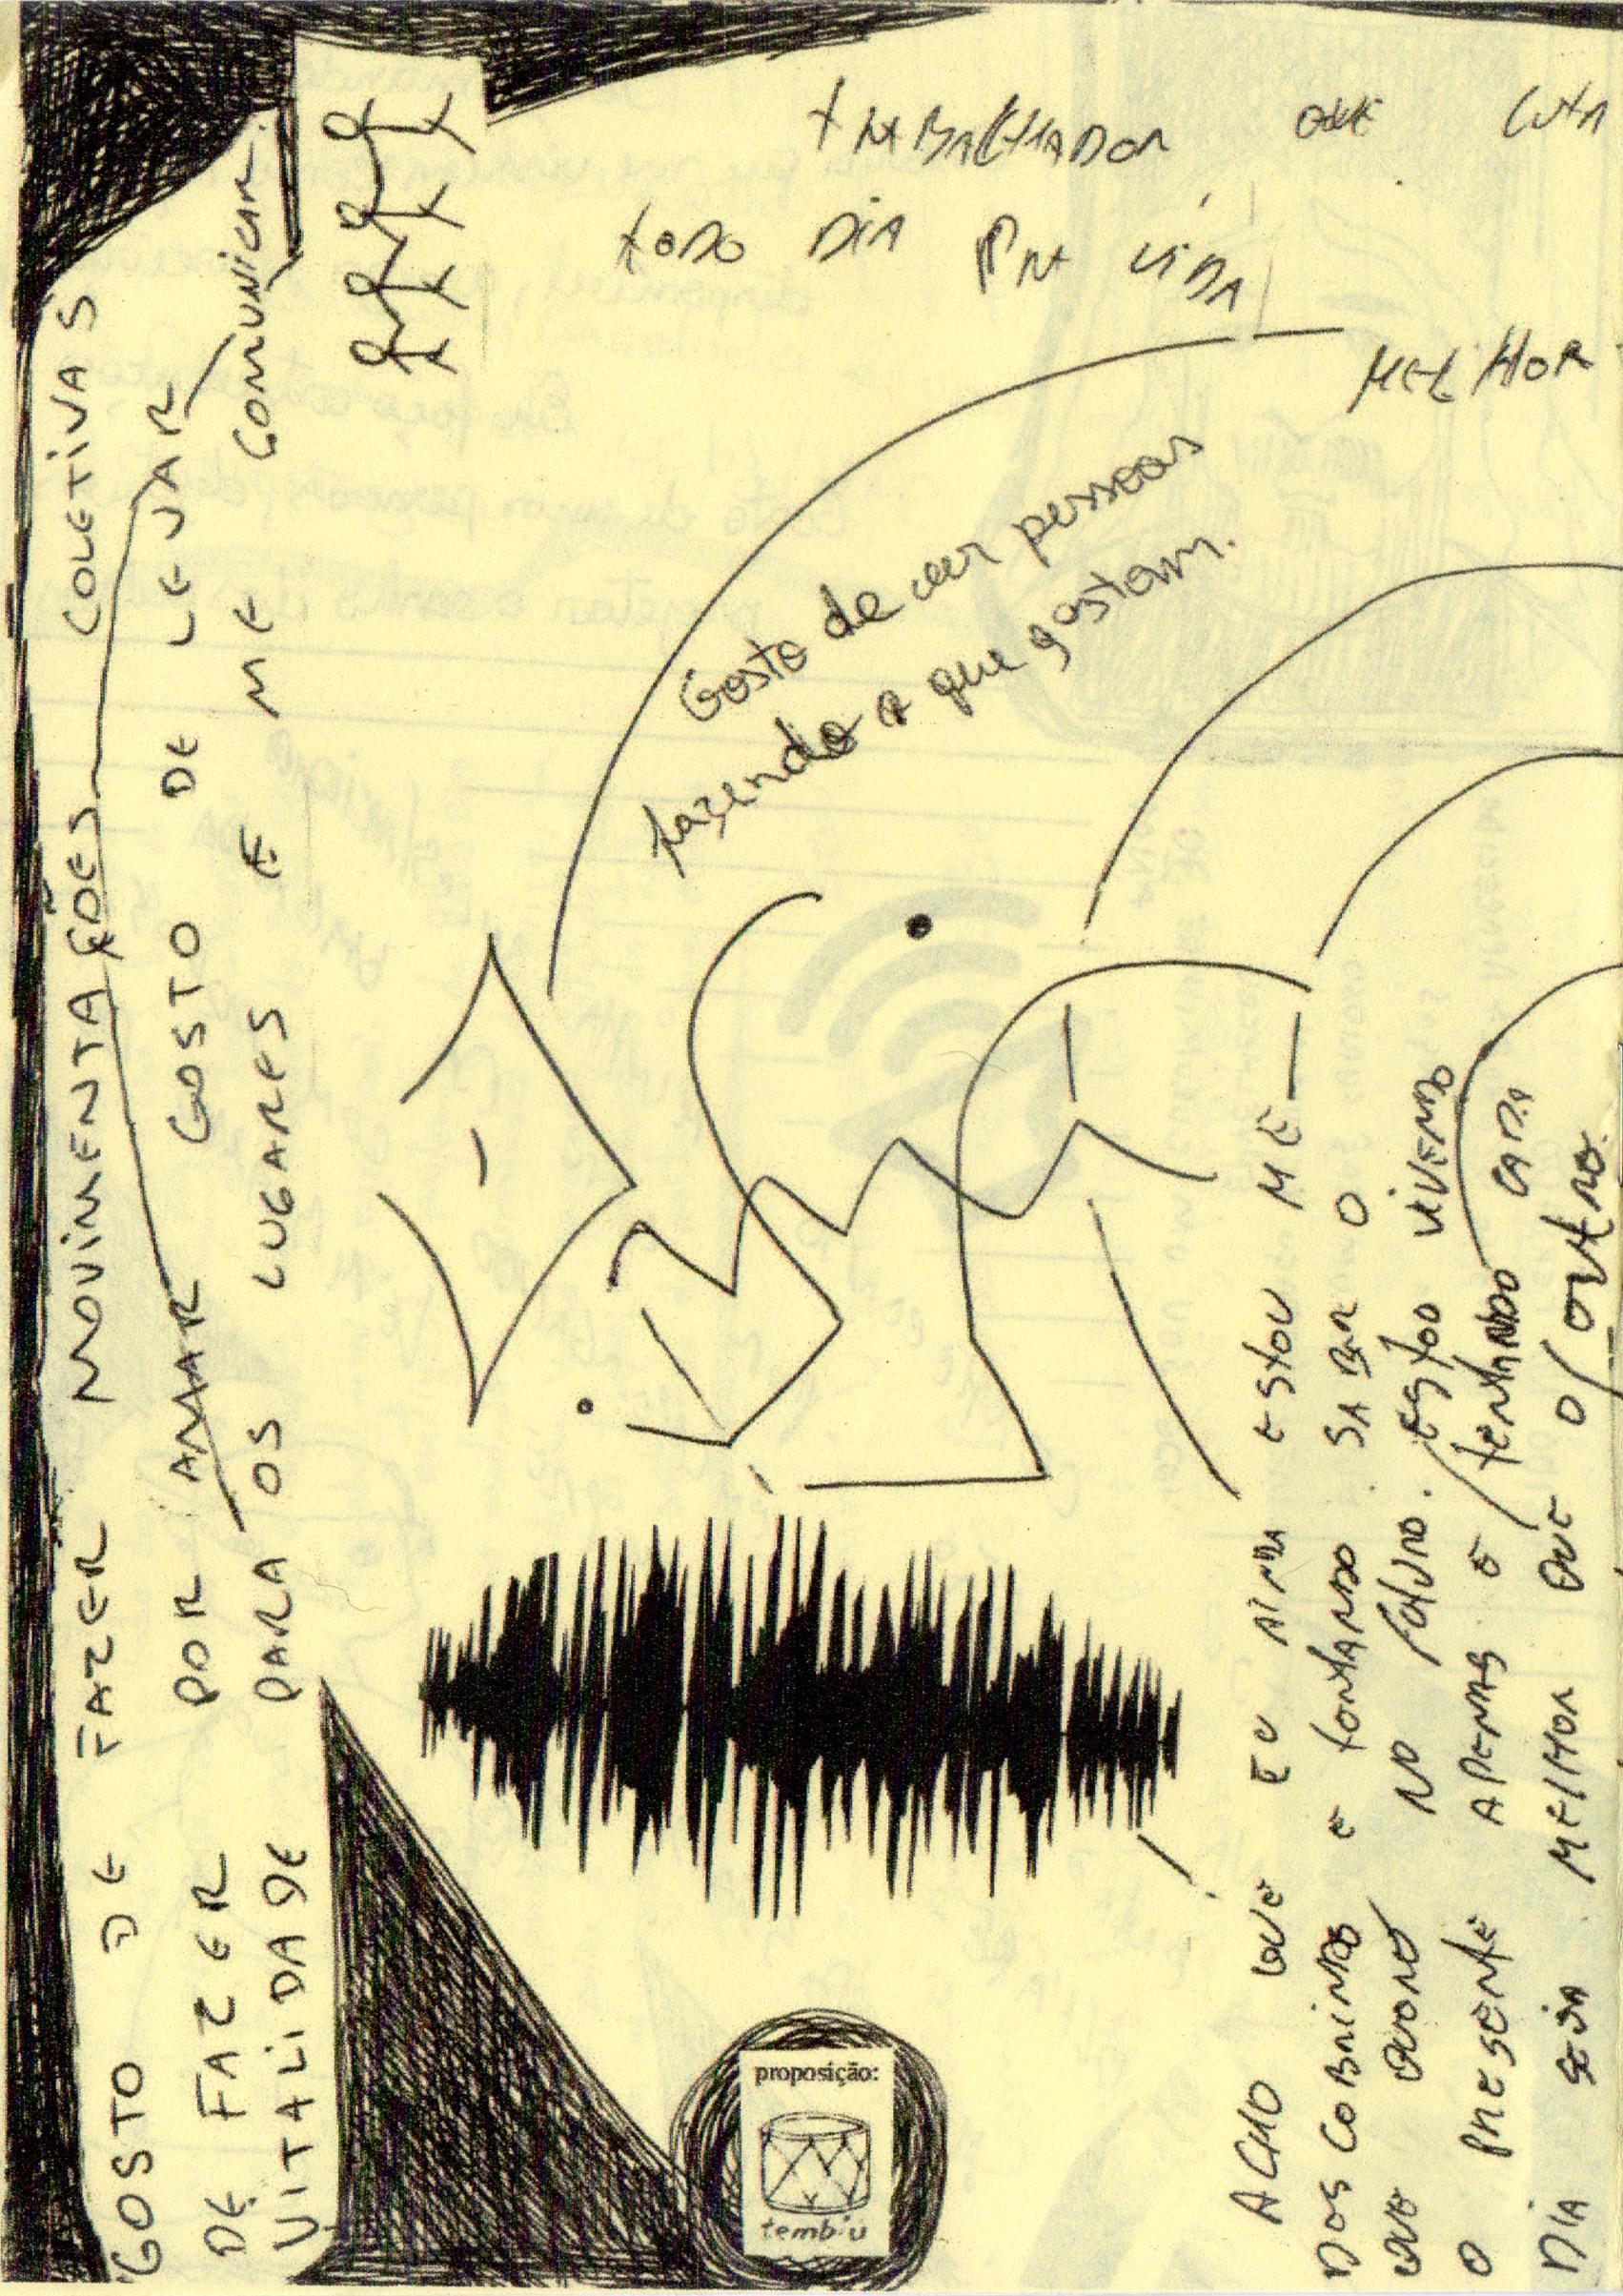 TRABALHADOR QUE LUTA
TODO DIA PRA VIDA
MELHOR
Gosto de ver pessoas
fazendo o que gostam.
GOSTO DE FAZER MOVIMENTAÇÕES COLETIVAS
DE FAZER POR AMAR GOSTO DE LEVAR
VITALIDADE PARA OS LUGARES E ME COMUNICAR.
ACHO QUE EU AINDA ESTOU ME
DOSCOBRINDO E TONTANDO SABER O
QUE QUORO NO FUTURO. ESTOU VIVENDO
O PRESENTE APENAS E TENTANDO CADA
DIA SEJA MELHOR QUE O OUTRO.
proposição:
tembiu